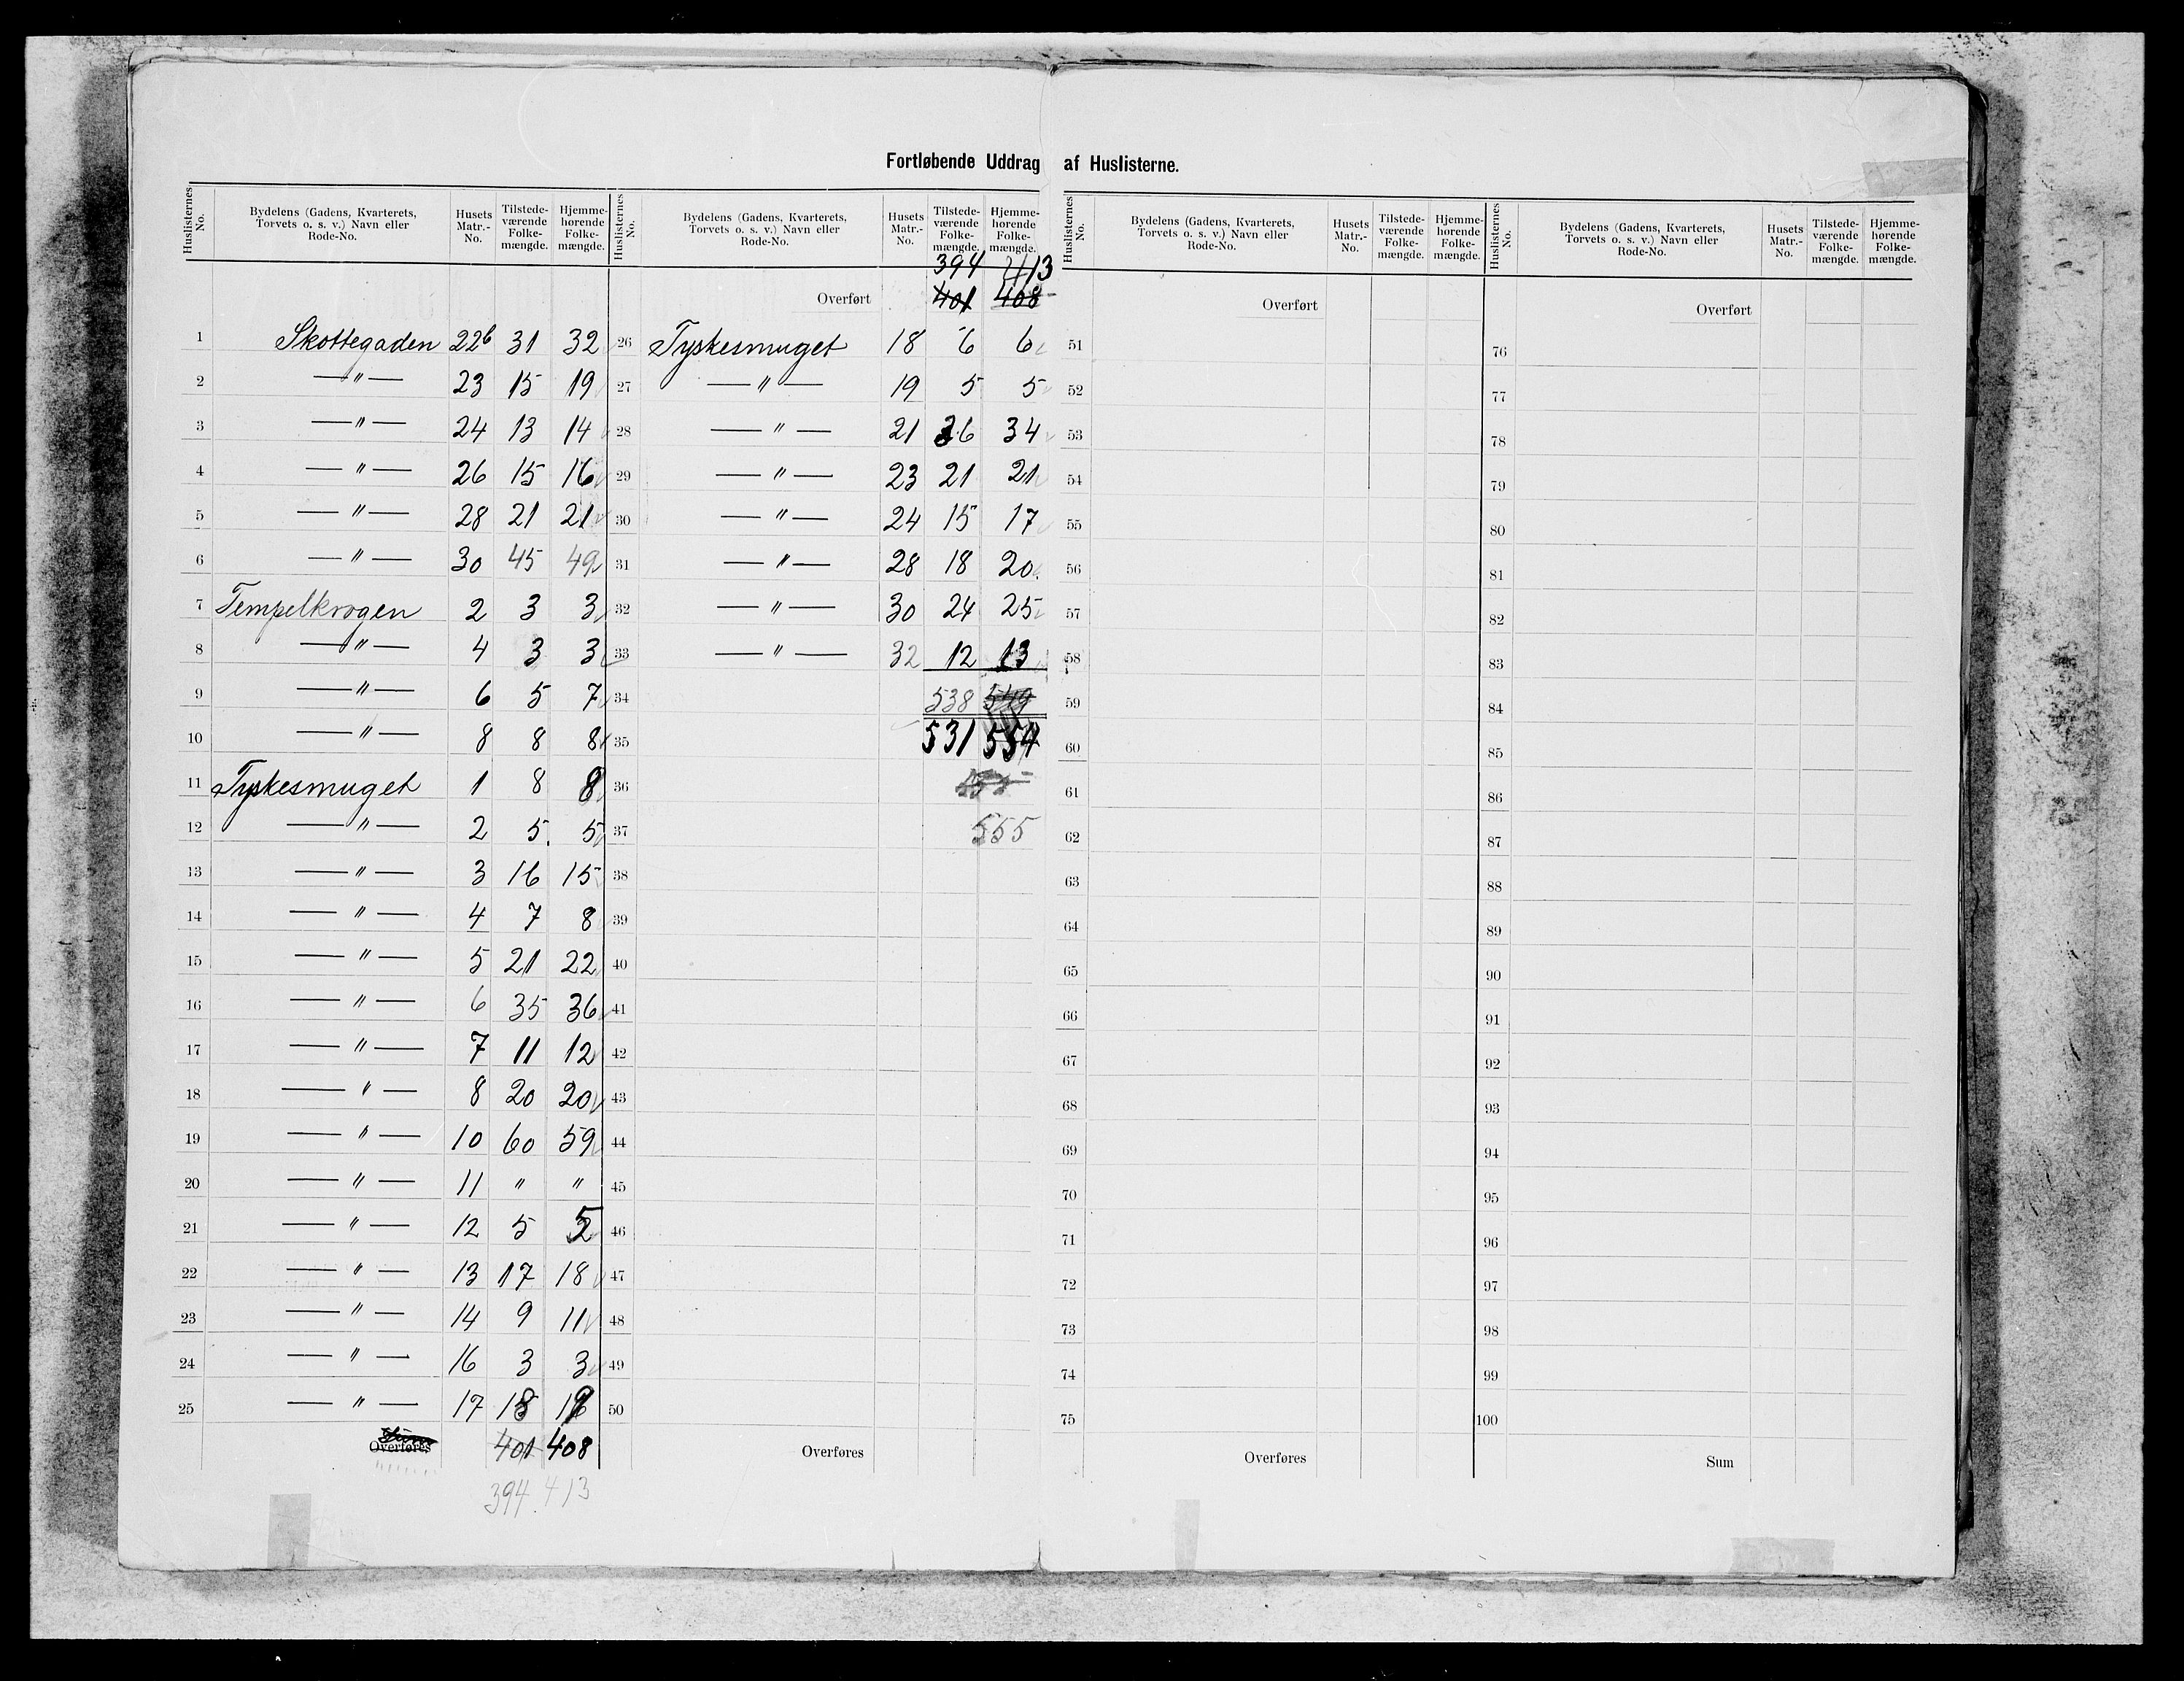 Fortløbende Uddrag af Huslisterne.
Huslisternes No. | Bydelens (Gadens, Kvarterets, Torvets o. s. v.) Navn eller Rode-No. | Husets Matr.-No. | Tilstede-værende Folke-mængde. | Hjemme-hørende Folke-mængde.
1 Skottegaden 22b 31 32
2 —"— 23 15 19
3 —"— 24 13 14
4 —"— 26 15 16
5 —"— 28 21 21
6 —"— 30 45 49
7 Tempelkrogen 2 3 3
8 —"— 4 3 3
9 —"— 6 5 7
10 —"— 8 8 8
11 Tyskesmuget 1 8 8
12 —"— 2 5. 5
13 —"— 3 16 15
14 —"— 4 7 8
15 —"— 5 21 22
16 —"— 6 35 36
17 —"— 7 11 12
18 —"— 8 20 20
19 —"— 10 60 59
20 —"— 11 " "
21 —"— 12 5 5
22 —"— 13 17 18
23 —"— 14 9 11
24 —"— 16 3 3
25 —"— 17 18 19
Overføres 401 408
394. 413
Huslisternes No. | Bydelens (Gadens, Kvarterets, Torvets o. s. v.) Navn eller Rode-No. | Husets Matr.-No. | Tilstede-værende Folke-mængde. | Hjemme-hørende Folke-mængde.
394 413
Overført 401 408
26 Tyskesmuget 18 6 6
27 —"— 19 5 5
28 —"— 21 36 34
29 —"— 23 21 21
30 —"— 24 15 17
31 —"— 28 18 20
32 —"— 30 24 25
33 —"— 32 12 13
34 538 549
35 531 554
36
37 555
38
39
40
41
42
43
44
45
46
47
48
49
50
Overføres
Huslisternes No. | Bydelens (Gadens, Kvarterets, Torvets o. s. v.) Navn eller Rode-No. | Husets Matr.-No. | Tilstede-værende Folke-mængde. | Hjemme-hørende Folke-mængde.
Overført
51
52
53
54
55
56
57
58
59
60
61
62
63
64
65
66
67
68
69
70
71
72
73
74
75
Overføres
Huslisternes No. | Bydelens (Gadens, Kvarterets, Torvets o. s. v.) Navn eller Rode-No. | Husets Matr.-No. | Tilstede-værende Folke-mængde. | Hjemme-hørende Folke-mængde.
Overført
76
77
78
79
80
81
82
83
84
85
86
87
88
89
90
91
92
93
94
95
96
97
98
99
100
Sum